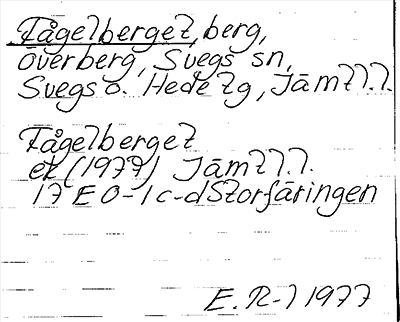 Fågelberget, berg,
Överberg, Svegs sn,
Svegs o. Hede tg, Jämtl.l.
Fågelberget
ek (1977) Jämtl.l.
17 E 0-1 c-d Storfåringen
E. R-l 1977